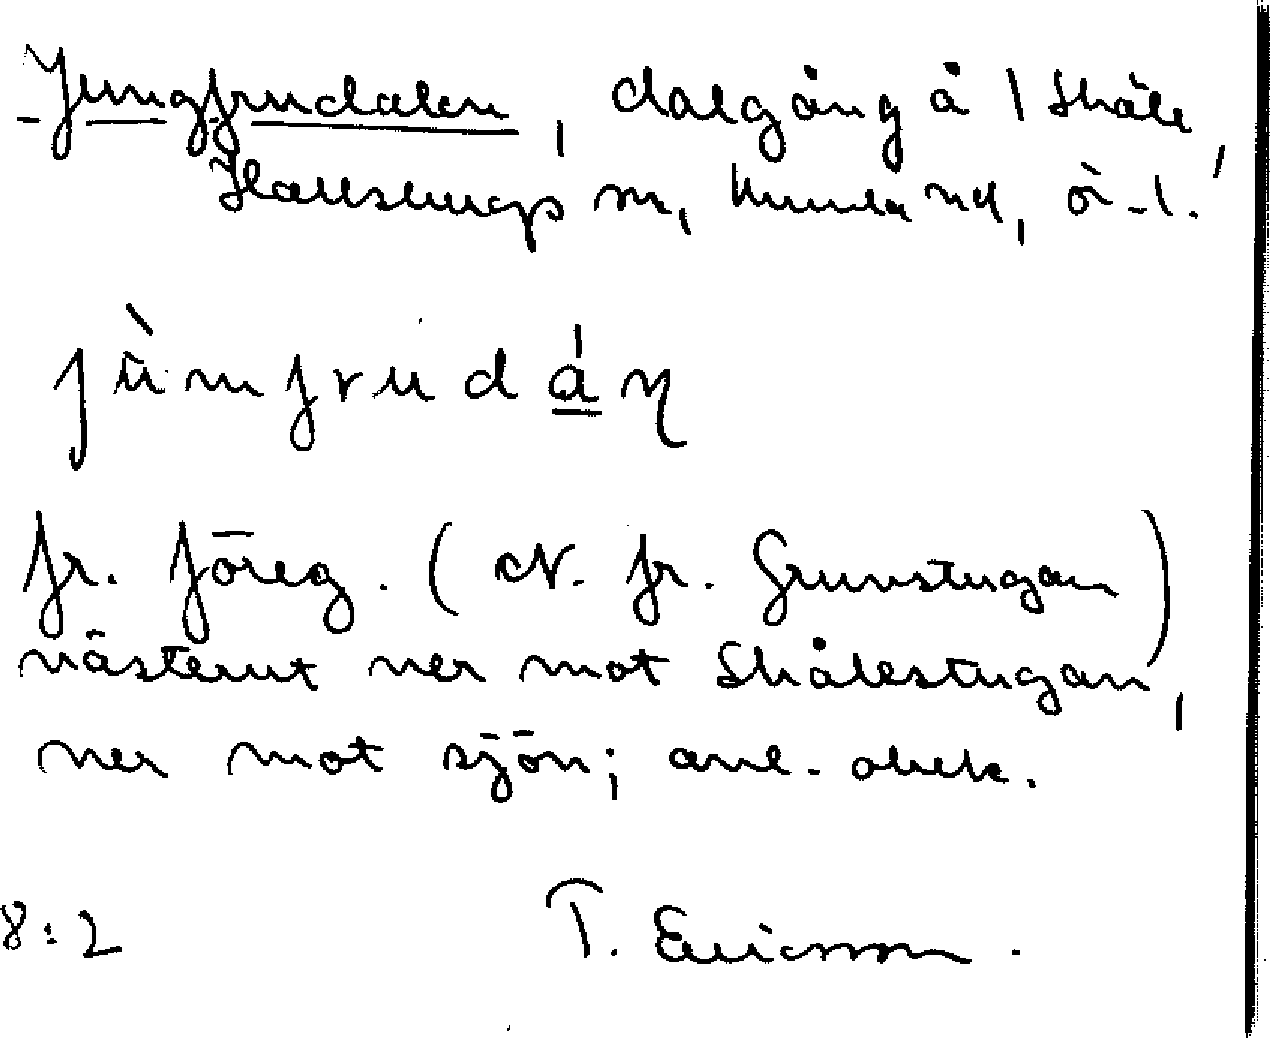 Jungfrudalen, dalgång å 1 Skåle,
Hallsbergs sn, Kumla hd, ö-l.
jùmfrudá̱ɳ
fr. föreg. (N. fr. Gruvstugan)
västerut ner mot Skålestugan,
ner mot sjön; anl. obek.
8:2 T. Ericsson.